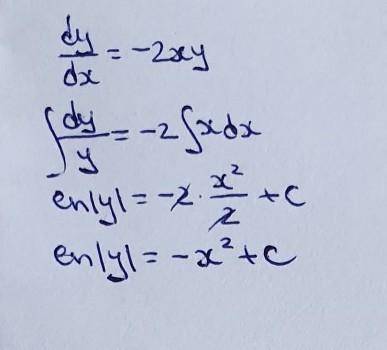 dy/dx = -2xy
∫dy/y = -2∫xdx
ln|y| = -2 · x²/2 + C
ln|y| = -x² + C